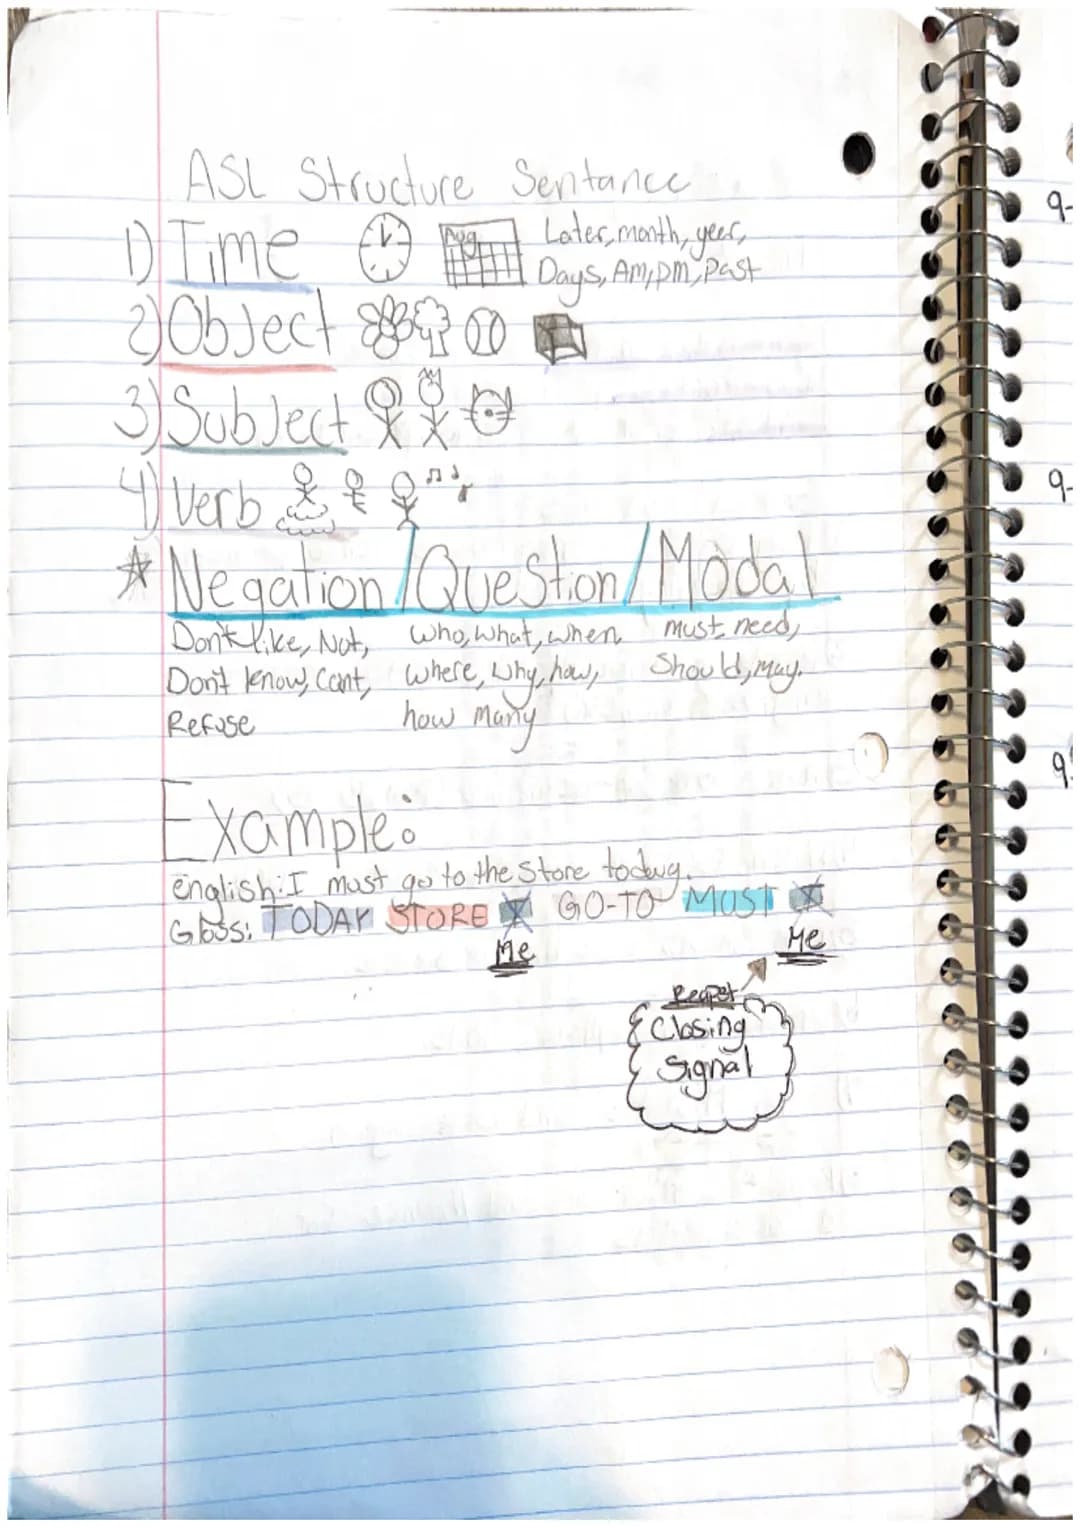 ASL Structure Sentance
1) Time Aug Later, month, year,
Days, Am, pm, Past
2) Object
3) Subject
4) Verb
Negation / Question / Modal
Don't like, Not, who, what, when must, need,
Don't know, Cant, where, why, how, Should, may.
Refuse how many
Example:
english: I must go to the Store today.
Gloss: TODAY STORE X GO-TO MUST X
Me Me
Closing
Signal
9-
9-
9